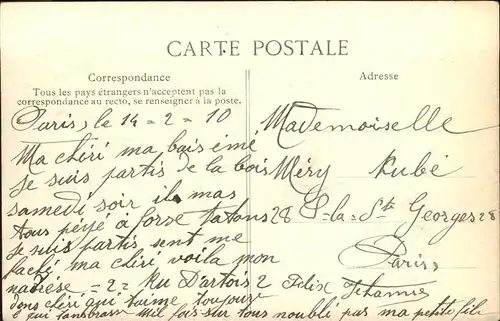 CARTE POSTALE
Correspondance
Tous les pays étrangers n'acceptent pas la
correspondance au recto, se renseigner à la poste.
Adresse
Paris, le 14 = 2 = 10
Ma chéri ma bais émé
Je suis partis de la bois
samedi soir il mas
tous péyé à forse
Je suis partis sent me
faché ma chéri voila mon
nadrese = 2 = Ru D'artois 2
dons chéri qui t'aime toujours
e qui tanbrase mil fois sur tous noublé pas ma petite file
Mademoiselle
Méry Kubé
28 S-la-St Georges 28
Paris,
Felix